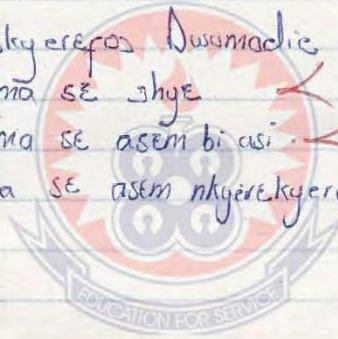 kyerεfoɔ Dwumadie
ma sε ɔhyε
ma sε asεm bi asi.
a sε asεm nkyerεkyerε
EDUCATION FOR SERVICE